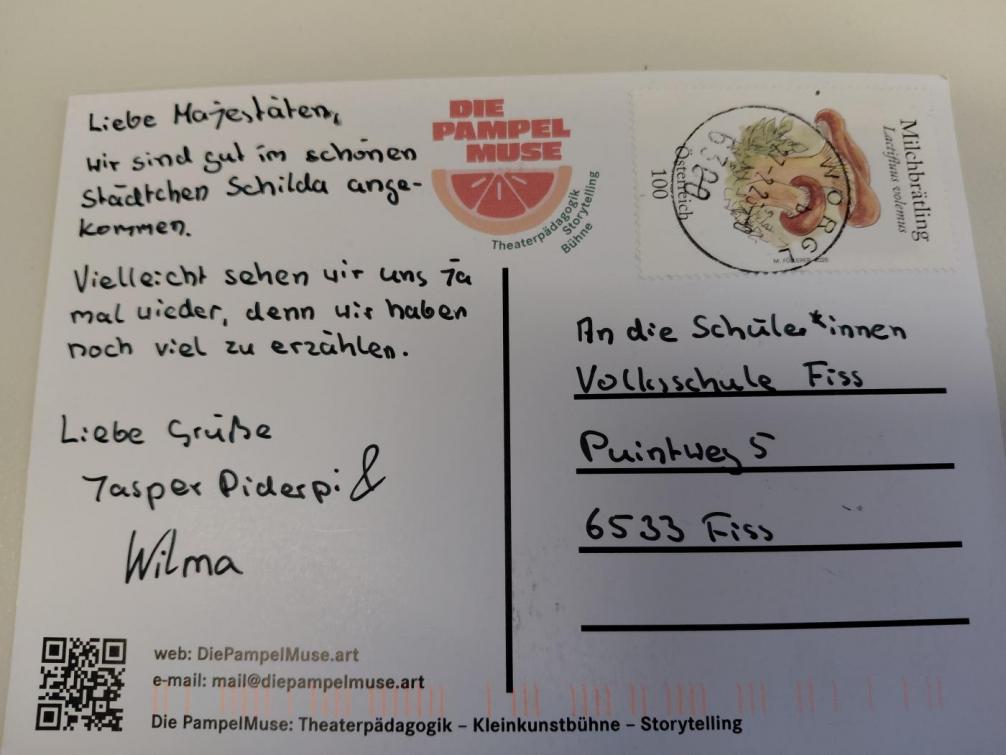 Liebe Majestäten,
wir sind gut im schönen
Städtchen Schilda ange-
kommen.
Vielleicht sehen wir uns ja
mal wieder, denn wir haben
noch viel zu erzählen.
Liebe Grüße
Jasper Piderpi &
Wilma
DIE
PAMPEL
MUSE
Theaterpädagogik
Storytelling
Bühne
Milchbrätling
Lactifluus volemus
Österreich
100
WÖRGL
6300
An die Schüler*innen
Volksschule Fiss
Puintweg 5
6533 Fiss
web: DiePampelMuse.art
e-mail: mail@diepampelmuse.art
Die PampelMuse: Theaterpädagogik – Kleinkunstbühne – Storytelling